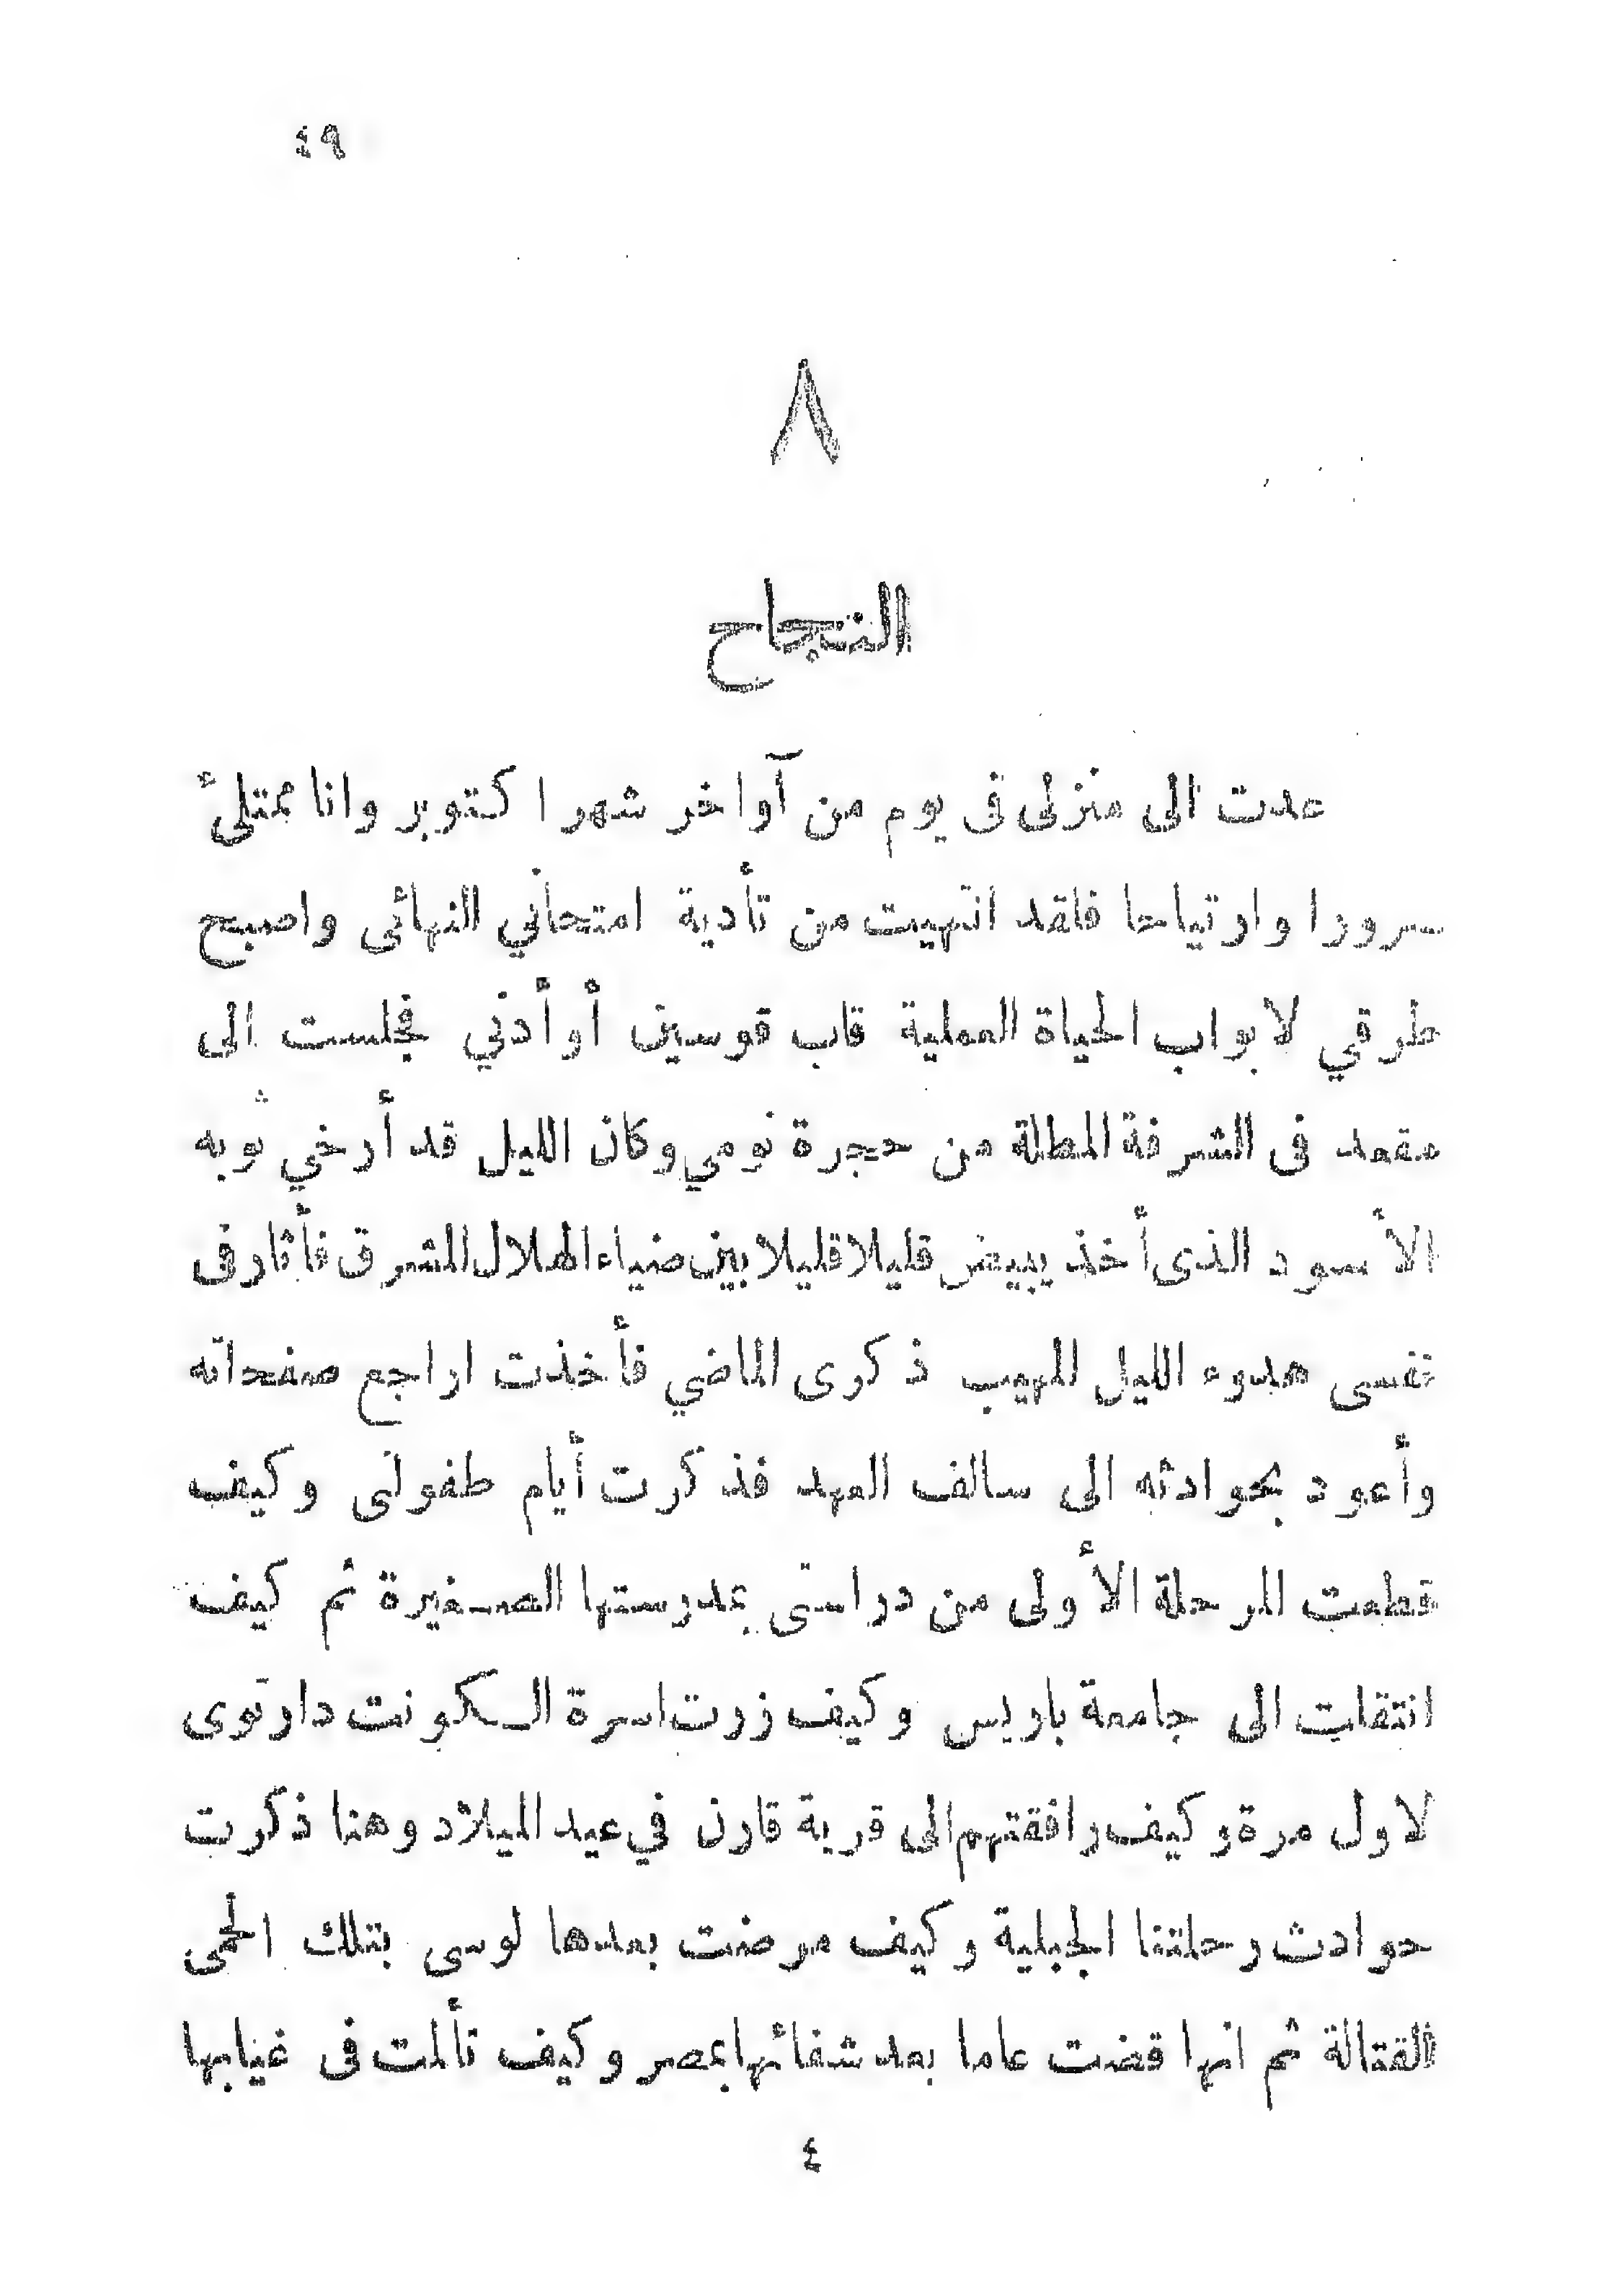 ٤٩
٨
النجاح
عدت الى منزلى فى يوم من آواخر شهر اكتوبر وانا ممتلىء
سرورا وارتياحا فلقد انتهيت من تأدية امتحاني النهائى واصبح
طرقي لابواب الحياة العملية قاب قوسين أو أدني فجلست الى
مقعد فى الشرفة المطلة من حجرة نومي وكان الليل قد أرخي ثوبه
الأسود الذى أخذ يبيض قليلا قليلا بين ضياء الهلال المشرق فأثار فى
نفسى هدوء الليل المهيب ذكرى الماضي فأخذت اراجع صفحاته
وأعود بحوادثه الى سالف العهد فذكرت أيام طفولتى وكيف
قطعت المرحلة الأولى من دراستى بمدرستها الصغيرة ثم كيف
انتقلت الى جامعة باريس وكيف زرت اسرة الكونت دارتوى
لاول مرة وكيف رافقتهم الى قرية قارن في عيد الميلاد وهنا ذكرت
حوادث رحلتنا الجبلية وكيف مرضت بعدها لوسى بتلك الحمى
القتالة ثم انها قضت عاما بعد شفائها بمصر وكيف تألمت فى غيابها
٤